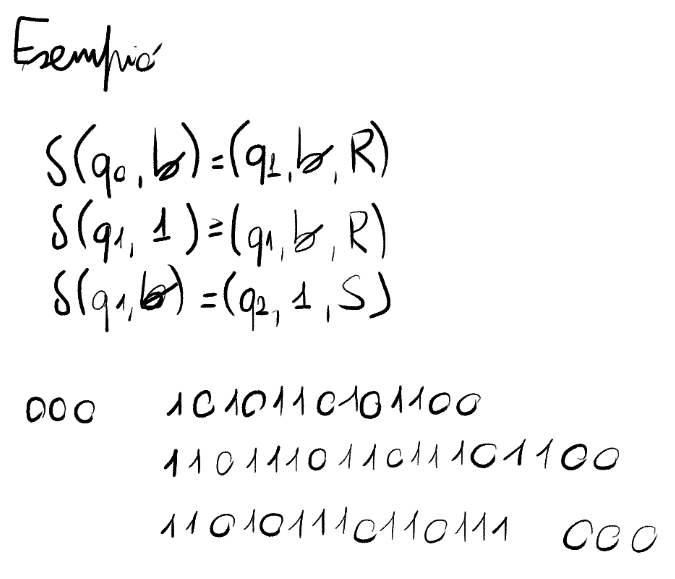 Esempio
δ(q₀, b̸) = (q₁, b̸, R)
δ(q₁, 1) = (q₁, b̸, R)
δ(q₁, b̸) = (q₂, 1, S)
000 1010110101100
110111011011101100
110101110110111 000